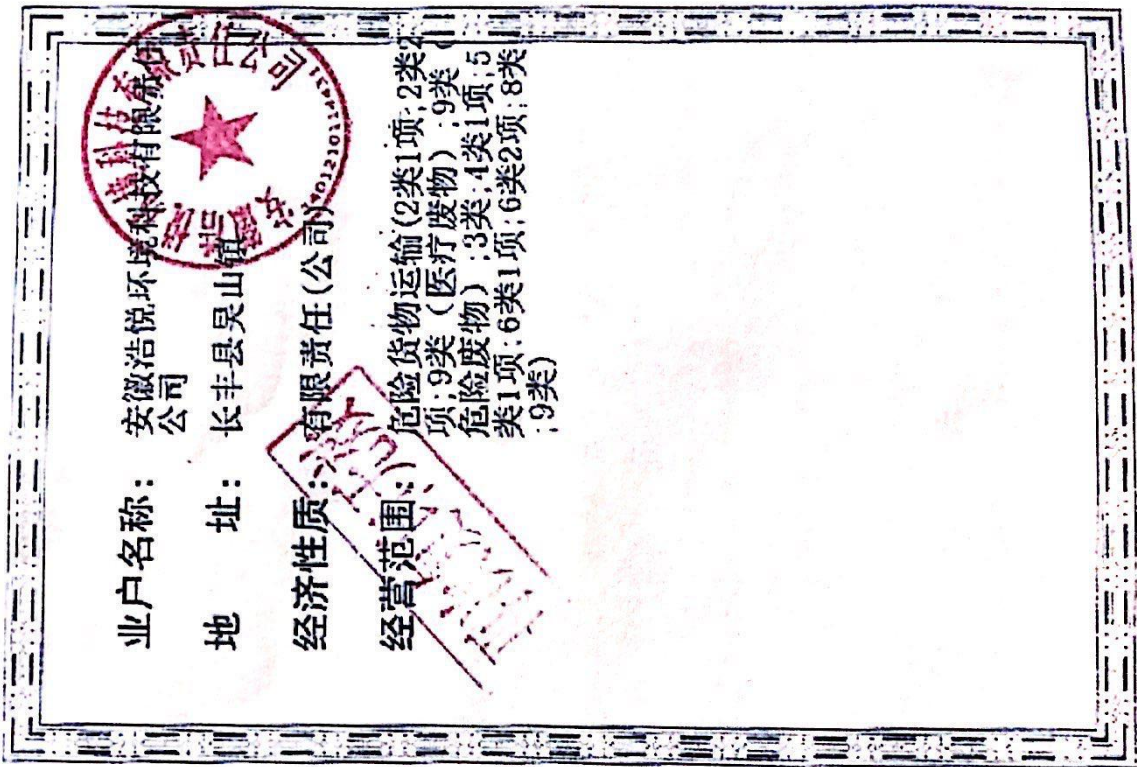 业户名称： 安徽浩悦环境科技有限责任
公司
地 址： 长丰县吴山镇
经济性质： 有限责任(公司)
经营范围： 危险货物运输(2类1项;2类2
项;9类（医疗废物）;9类（
危险废物）;3类;4类1项;5
类1项;6类1项;6类2项;8类
;9类)